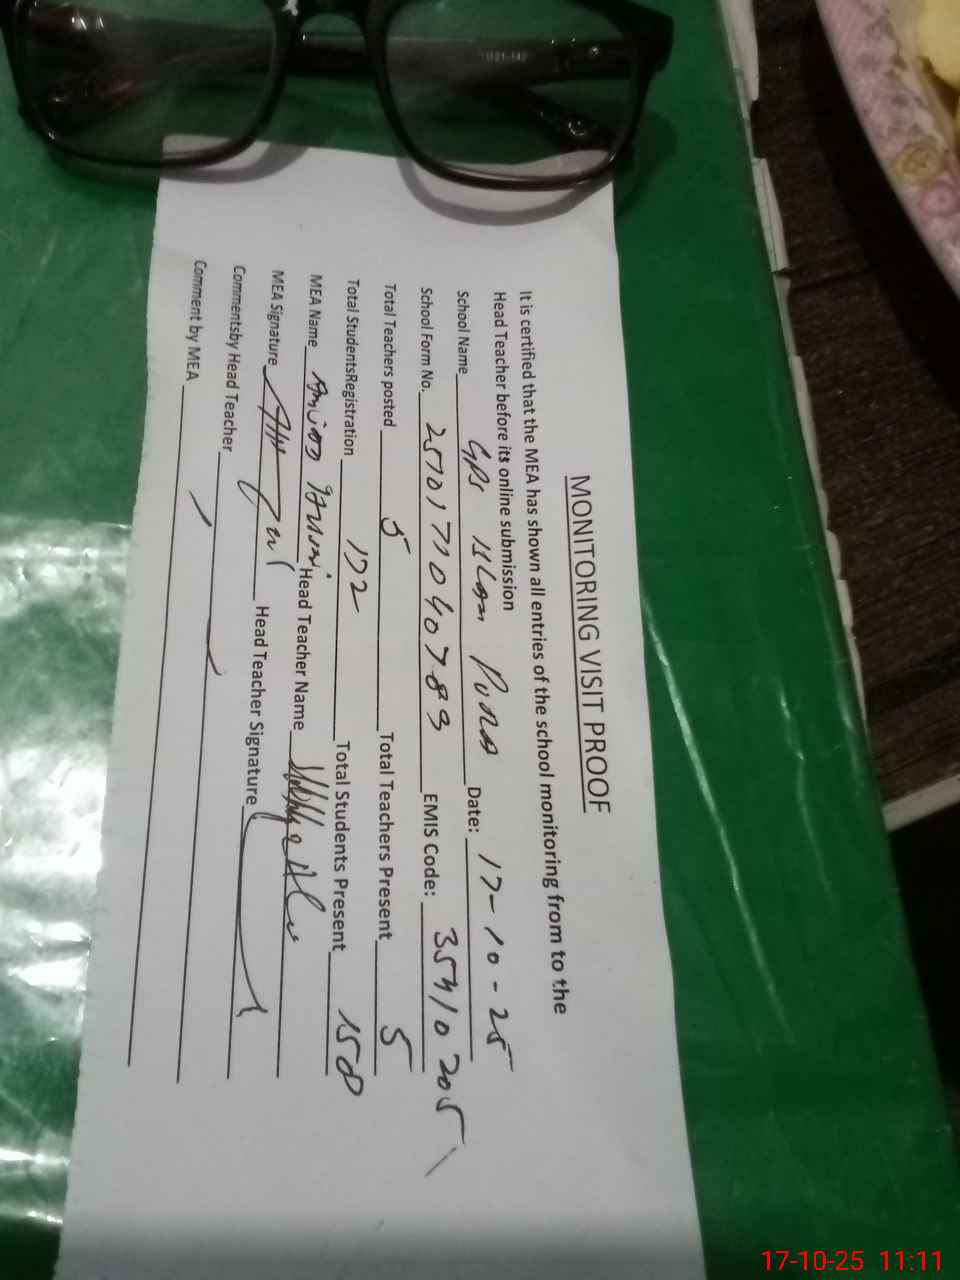 MONITORING VISIT PROOF
It is certified that the MEA has shown all entries of the school monitoring from to the
Head Teacher before its online submission
School Name GPS Islam Pura Date: 17-10-25
School Form No. 2570177040789 EMIS Code: 35410205
Total Teachers posted 5 Total Teachers Present 5
Total StudentsRegistration 172 Total Students Present 158
MEA Name Head Teacher Name
MEA Signature Head Teacher Signature
Commentsby Head Teacher
Comment by MEA
17-10-25 11:11